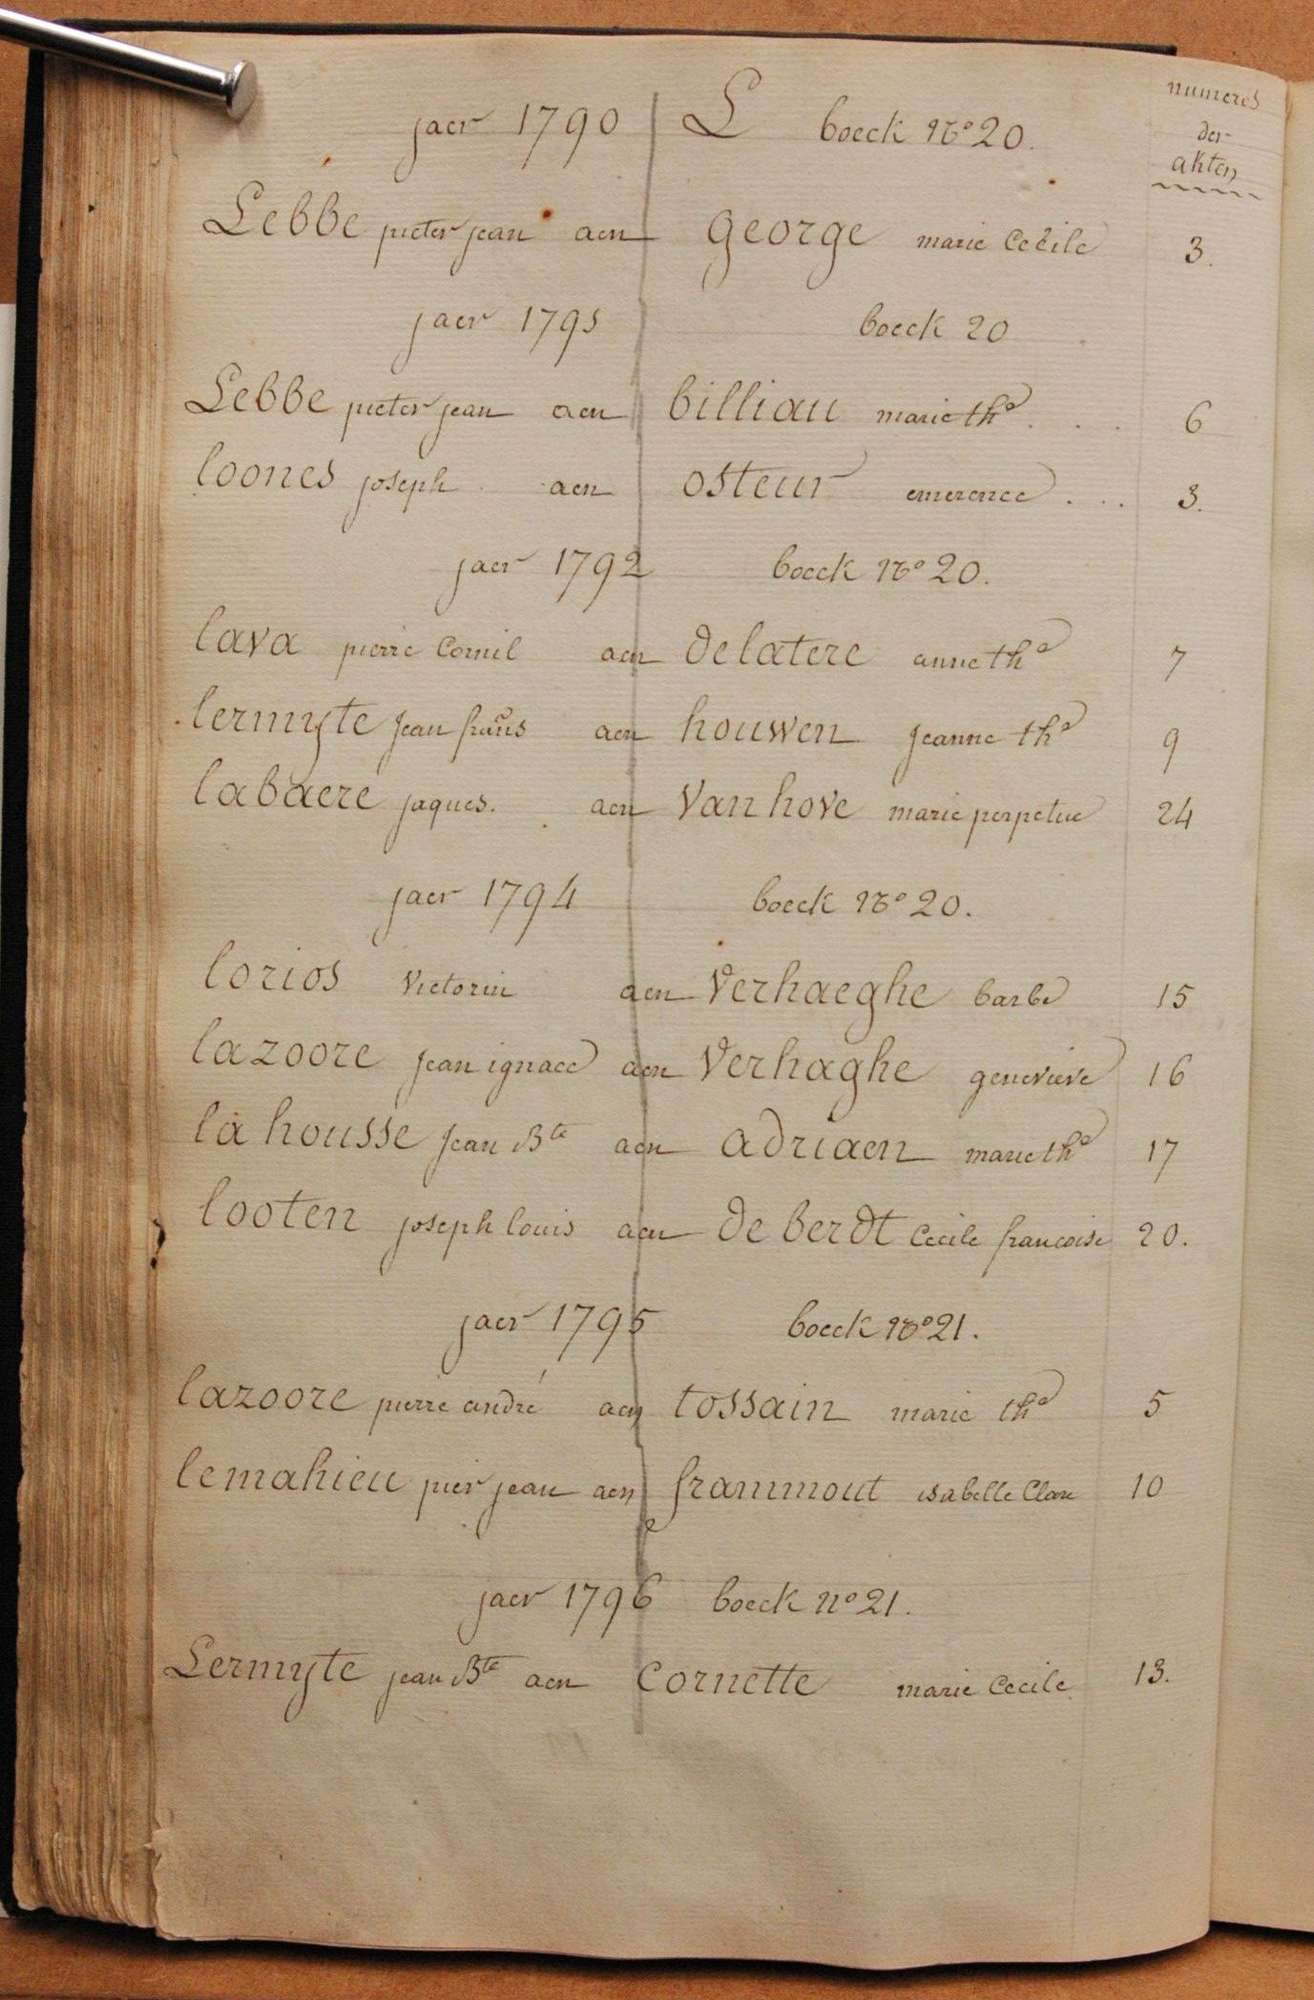 jaer 1790 L boeck No 20.
numeros
der
akten
Lebbe pieter jean aen george marie Cecile 3.
jaer 1791 boeck 20
Lebbe pieter jean aen billiau marie the . . . 6
loones joseph aen osteur emerence . . . 3.
jaer 1792 boeck No 20.
lava pierre Cornil aen delatere anne the 7
lermyte Jean frans aen houwen Jeanne the 9
labaere jaques. aen Vanhove marie perpetue 24
jaer 1794 boeck No 20.
lorios Victorin aen Verhaeghe barbe 15
lazoore Jean ignace aen Verhaghe genevieve 16
la housse Jean Bte aen adriaen marie the 17
looten joseph louis aen de berdt Cecile francoise 20.
jaer 1795 boeck No 21.
lazoore pierre andré aen tossain marie the 5
lemahieu pier jean aen frammout isabelle Clare 10
jaer 1796 boeck no 21.
Lermyte jean Bte aen Cornette marie Cecile 13.